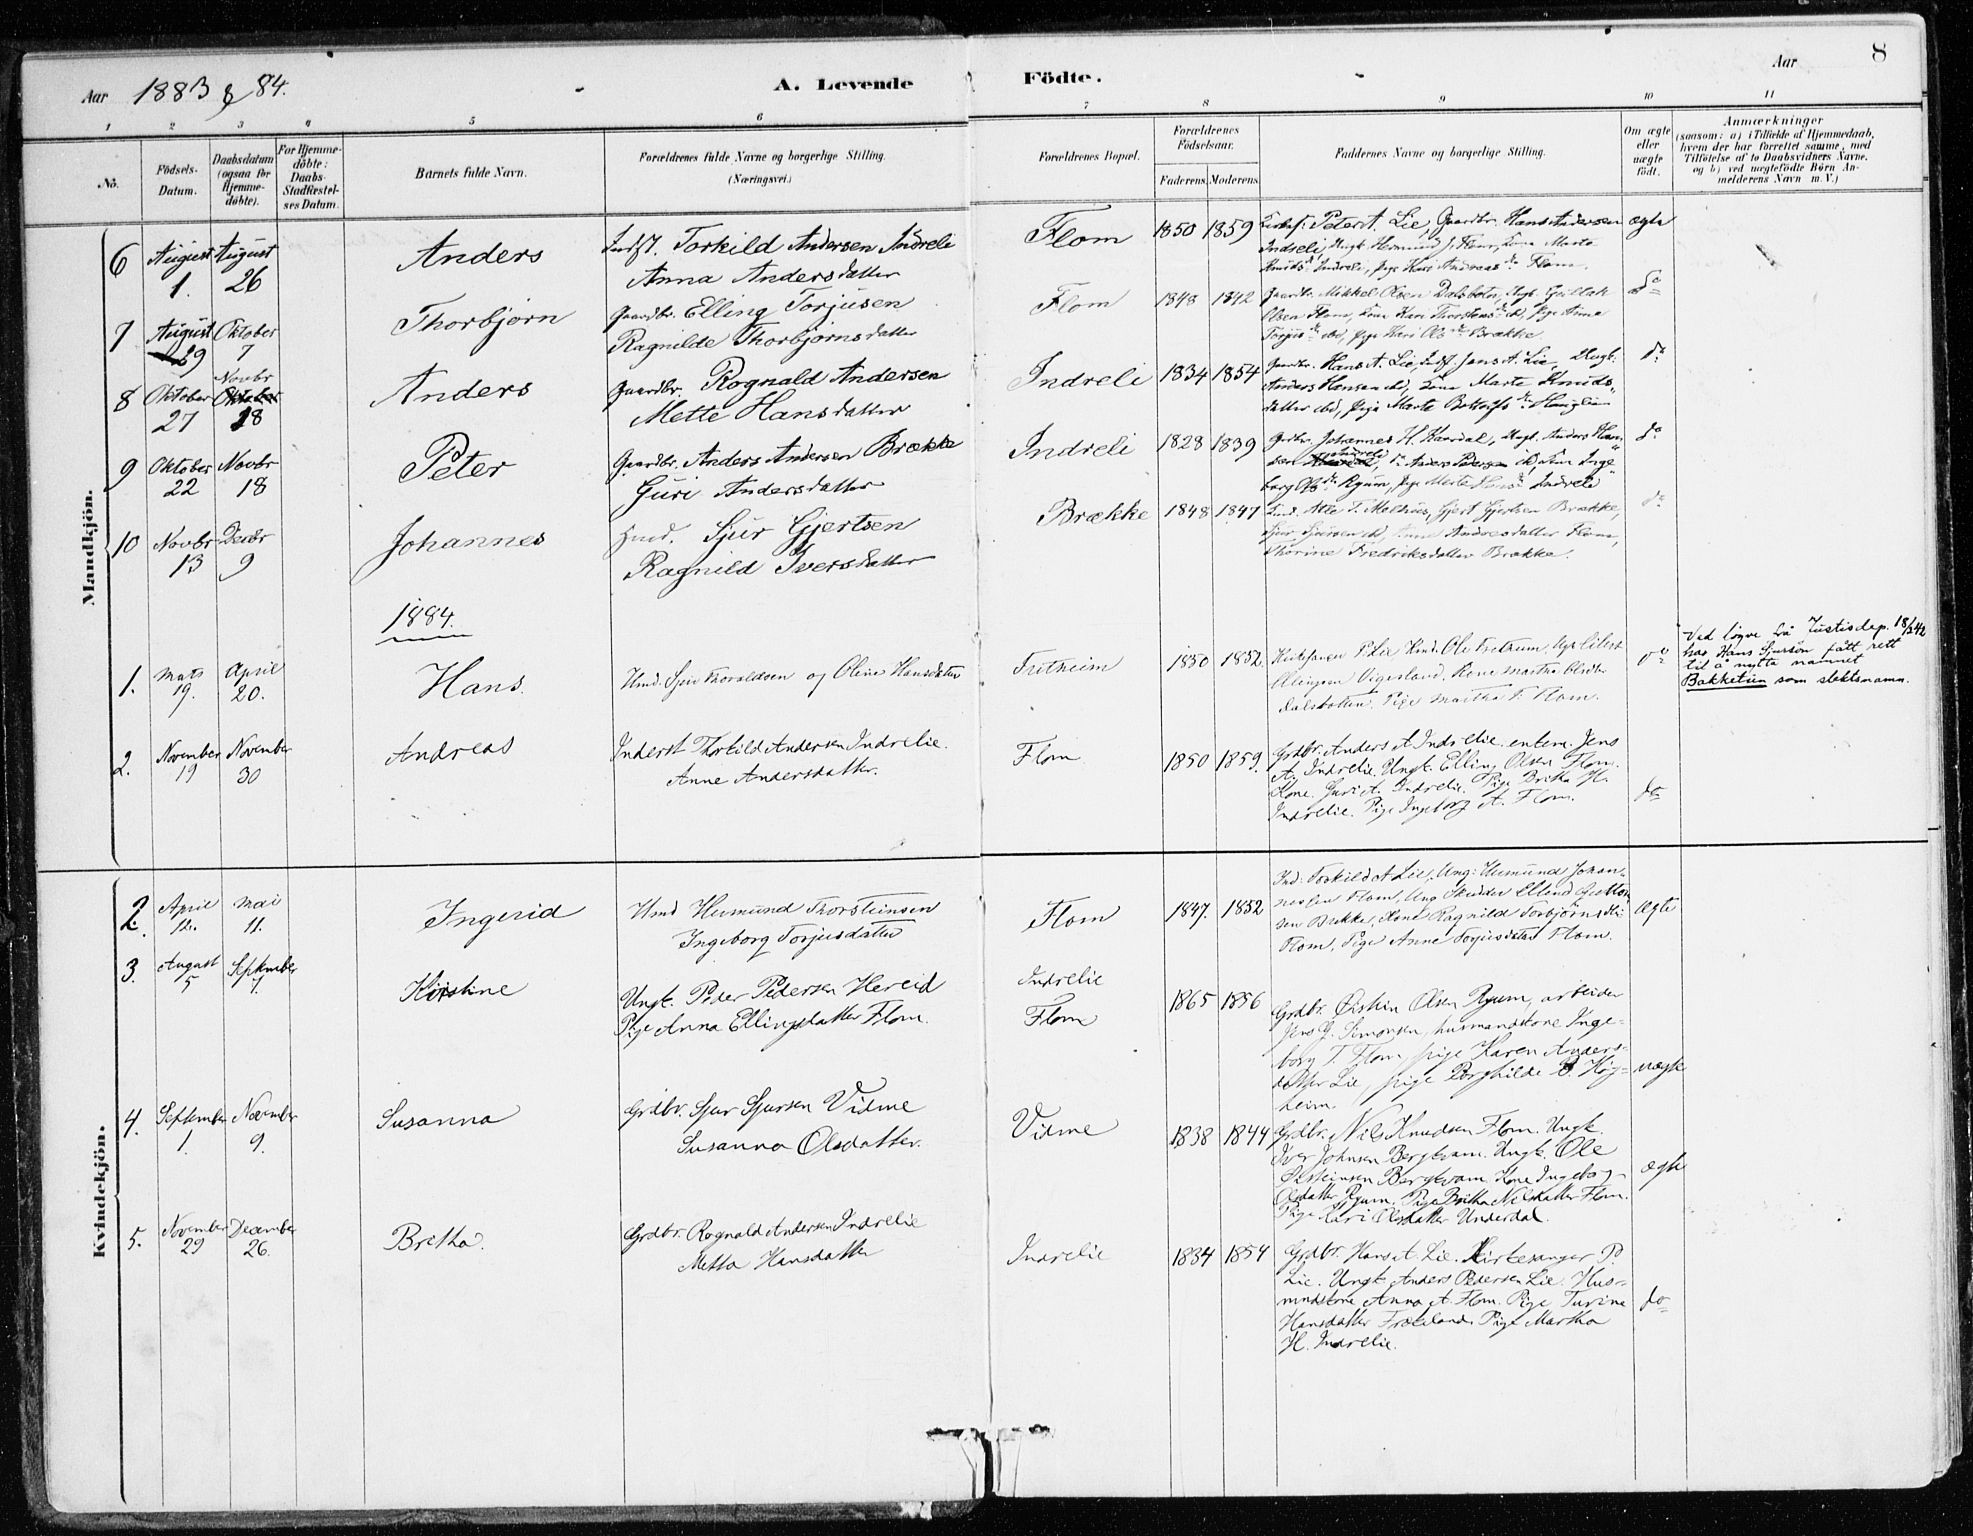 Aar 1883 & 84. A. Levende Födte. Aar 8
1 2 3 4 5 6 7 8 9 10 11
No.
Födsels-Datum.
Daabsdatum (ogsaa for Hjemme-döbte).
For Hjemme-döbte: Daabs-Stadfæstel-ses Datum.
Barnets fulde Navn.
Forældrenes fulde Navne og borgerlige Stilling.
(Næringsvei.)
Forældrenes Bopæl.
Forældrenes Födselsaar.
Faderens. Moderens.
Faddernes Navne og borgerlige Stilling.
Om ægte eller uægte födt.
Anmærkninger
(saasom: a) i Tilfælde af Hjemmedaab,
hvem der har forrettet samme, med
Tilföielse af to Daabsvidners Navne.
og b) ved uægtefödte Börn An-
melderens Navn m. V.)
Mandkjön.
6 August 1. August 26 Anders
Indst. Torkild Andersen Indreli
Anna Andersdatter
Flom 1850 1859
Kirkes. Peter A. Lie, Gaardbr. Hans Andersen
Indreli, Ungk. Hermund J. Flom, Kone Marta
Knudsdr. Indreli, Pige Kari Andreasdr. Flom.
ægte
7 August 29 Oktober 7 Thorbjørn
Gaardbr. Elling Torjusen
Ragnilde Thorbjørnsdatter
Flom 1848 1842
Gaardbr. Mikkel Olsen Dalsboten, Ungk.
Olsen Flom, Kone Kari Thorstensdr. ibd, Pige Anna
Torjusdr. ibd, Pige Kari Olsdr. Brække
do
8 Oktober 27 Novbr Oktober 18 Anders
Gaardbr. Rognald Andersen
Mette Hansdatter
Indreli 1834 1854
Gaardbr. Hans A. Lie, Indst. Jens A. Lie, Ungk.
Anders Hansen ibd, Kone Marte Knuds-
datter ibd, Pige Marta
do
9 Oktober 22 Novbr 18 Peter
Gaardbr. Anders Andersen Brække
Guri Andersdatter
Indreli 1828 1839
Grdbr. Johannes H. Kaardal, Ungk. Anders Han-
sen Indreli, do Anders Pedersen ibd, Kone Inge-
borg Olsdr. Ryum, Pige Marta Hansdr. Indreli
do
10 Novbr 13 Decbr 9 Johannes
Hmd. Sjur Gjertsen
Ragnild Iversdatter
Brække 1848 1847
Ind. Atle T. Melhus, Gjert Gjertsen Brække,
Sjur Sjursen ibd, Anna Andreasdatter Flom,
Thorine Fredriksdatter Brække.
do
1884.
1. Mats 19. April 20. Hans.
Hmd. Sjur Thoraldsen og Oline Hansdatter
Fretheim 1850 1852.
Kirkesanger P. Lie Hmd. Ole Fretheim, Ungk. Eilert
Ellingsen Vigesland, Kone Martha Olsdtr
Dalsbotten. Pige Martha T. Flom.
do
Ved løyve frå Justisdep. 18/3 42
har Hans Sjursson fått rett
til å nytta namnet
Bakketun som slektsnamn.
2. November 19 November 30 Andreas
Inderst Thorkild Andersen Indrelie.
Anne Andersdatter.
Flom 1850 1859.
Grdbr. Anders A Indrelie. enkem. Jens
A. Indrelie. Ungk. Elling Olsen Flom.
Kone. Guri A. Indrelie. Pige Britha H.
Indrelie. Pige Ingeborg A. Flom.
do
Kvindekjön.
2. April 12. Mai 11. Ingerid
Hmd Hermund Thorsteinsen
Ingeborg Torjusdatter
Flom 1847. 1852
Ind. Torkild A Lie, Ung: Hermund Johan-
nesen Flom, Ung Skrædder Ellend
sen Brekke, Kone Ragnild Torbjørnsdtr
Flom, Pige Anne Torjusdatter Flom.
Ægte
3. August 5 September 7. Kirstine
Ungk. Peder Pedersen Hereid
Pige Anna Ellingsdatter Flom.
Indrelie
Flom
1865 1856
Grdbr. Østein Olsen Ryum, arbeider
Jens G. Simonsen, husmandskone Inge-
borg T. Flom, pige Karen Anders-
datter Lie, pige Borghilde B. Høy-
heim.
uægte
4. September 1. November 9. Susanna
Grdbr. Sjur Sjursen Vidme
Susanna Olsdatter.
Vidme 1838 1844
Grdbr. Nils Knudsen Flom. Ungk.
Iver Johnsen Bergkvam. Ungk. Ole
Østeinsen Bergkvam. Kone Ingeborg
Olsdatter Ryum. Pige Britha Nilsdatter Flom.
Pige Kari Olsdatter Underdal.
ægte
5. November 29 December 26. Bretha.
Grdbr. Rognald Andersen Indrelie
Metta Hansdatter
Indrelie 1834 1854
Grdbr. Hans A. Lie. Kirkesanger P.
Lie. Ungk Anders Pedersen Lie. Hus-
mndskone Anna A. Flom. Pige Turina
Hansdatter Pige Martha
H. Indrelie.
do